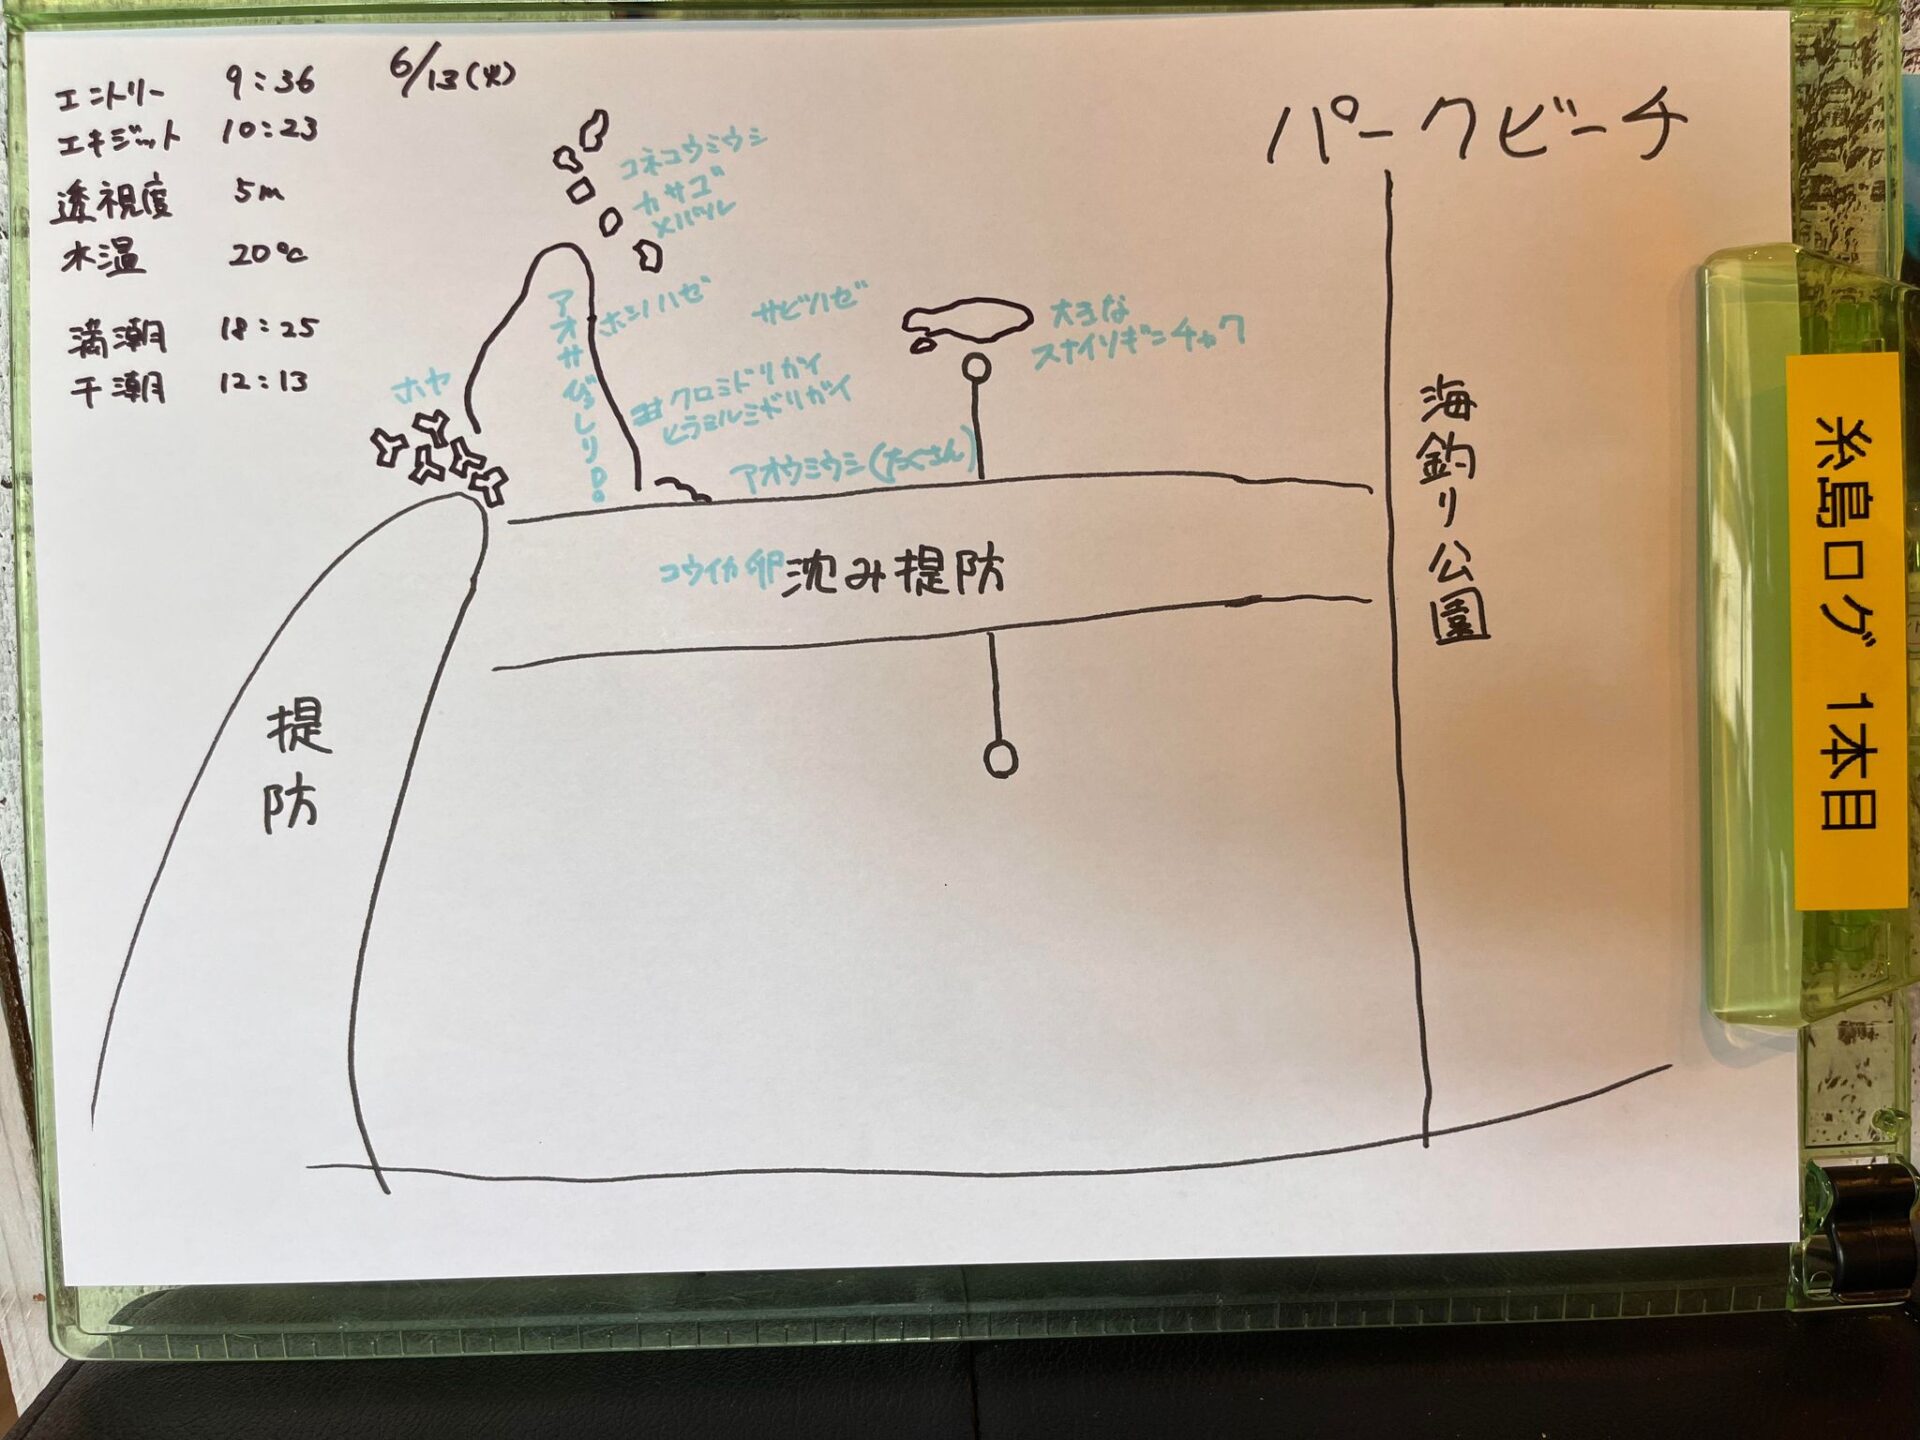 エントリー 9:36 6/13(火)
エキジット 10:23
透視度 5m
水温 20℃
満潮 18:25
干潮 12:13
パークビーチ
コネコウミウシ
カサゴ
メバル
ホンハゼ
サビハゼ
アオサびっしり
大きな
スナイソギンチャク
ホヤ
クロミドリガイ
ヒラミルミドリガイ
アオウミウシ(たくさん)
コウイカ卵
沈み提防
提防
海釣り公園
糸島ログ 1本目